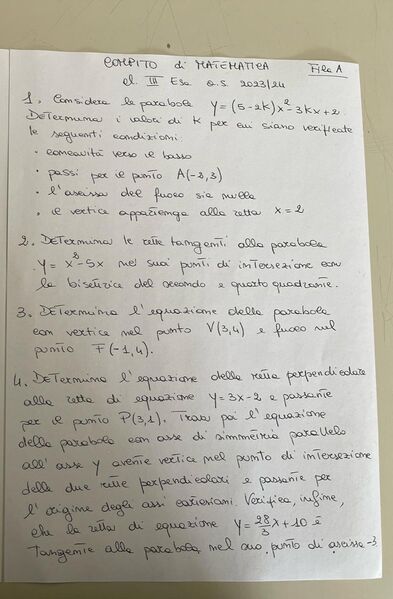 COMPITO di MATEMATICA Fila A
cl. III Esa a.s. 2023/24
1. Considera la parabola y = (5-2k)x² - 3kx + 2
Determina i valori di k per cui siano verificate
le seguenti condizioni:
· concavità verso il basso
· passi per il punto A(-2,3)
· l'ascissa del fuoco sia nulla
· il vertice appartenga alla retta x = 2
2. Determina le rette tangenti alla parabola
y = x² - 5x nei suoi punti di intersezione con
la bisettrice del secondo e quarto quadrante.
3. Determina l'equazione della parabola
con vertice nel punto V(3,4) e fuoco nel
punto F(-1,4).
4. Determina l'equazione della retta perpendicolare
alla retta di equazione y = 3x - 2 e passante
per il punto P(3,1). Trova poi l'equazione
della parabola con asse di simmetria parallelo
all'asse y avente vertice nel punto di intersezione
delle due rette perpendicolari e passante per
l'origine degli assi cartesiani. Verifica, infine,
che la retta di equazione y = 28/3 x + 10 è
tangente alla parabola nel suo punto di ascissa -3.